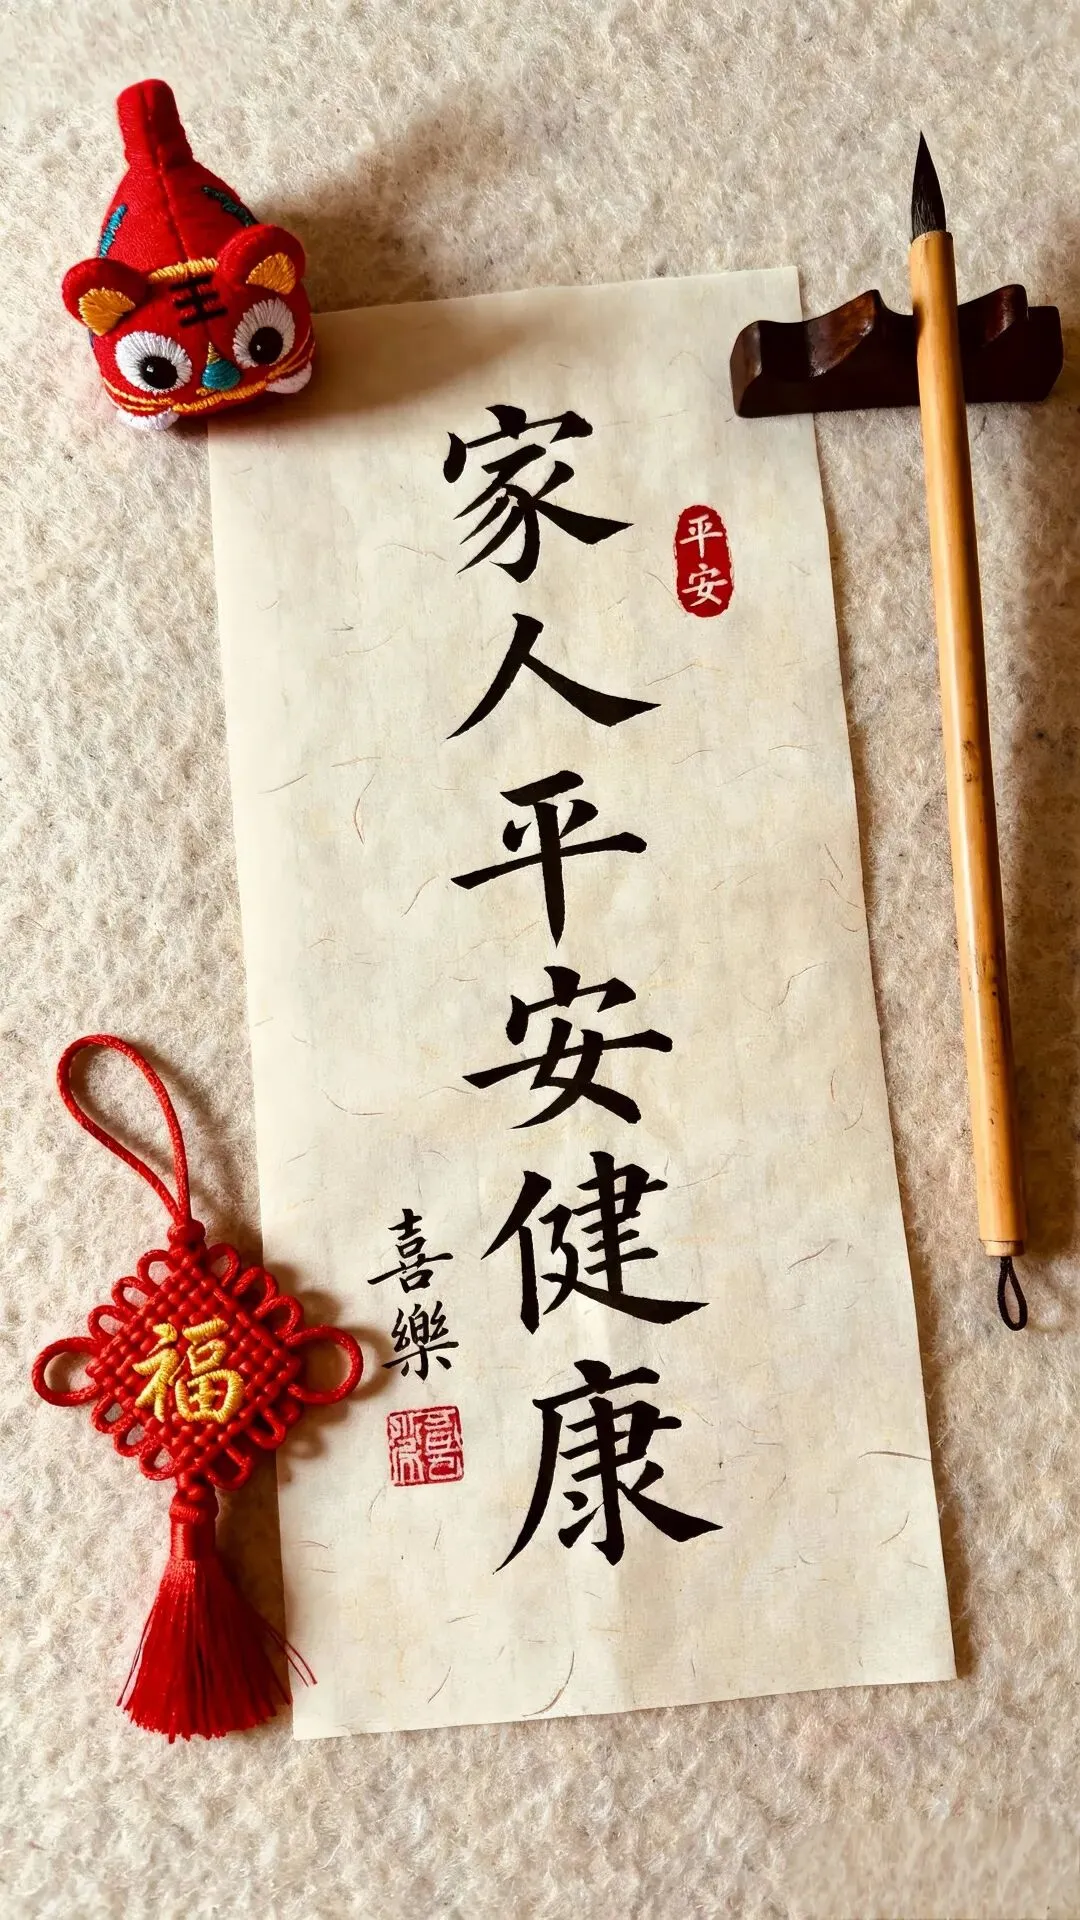 家人平安健康
平安
喜樂
福
王